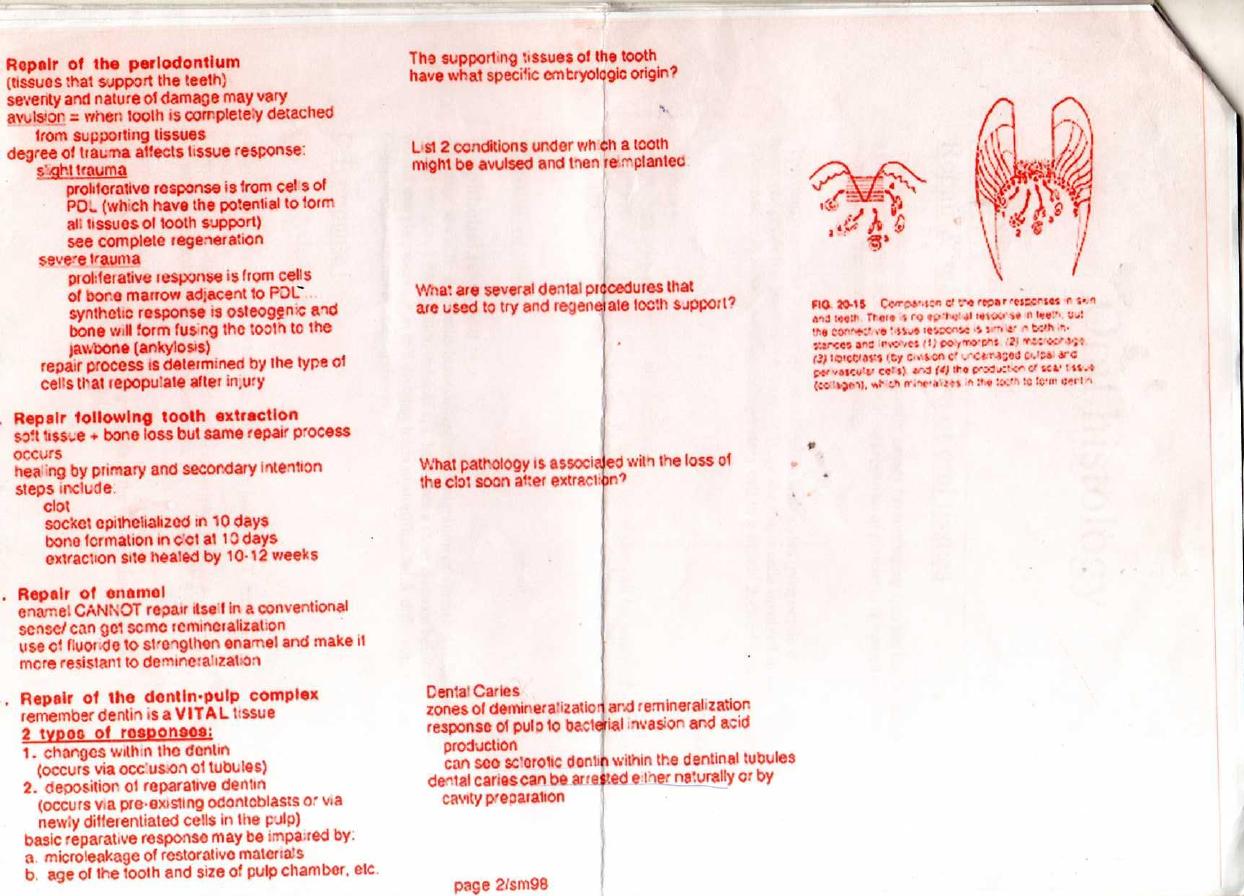 Repair of the periodontium
(tissues that support the teeth)
severity and nature of damage may vary
avulsion = when tooth is completely detached
from supporting tissues
degree of trauma affects tissue response:
slight trauma
proliferative response is from cells of
PDL (which have the potential to form
all tissues of tooth support)
see complete regeneration
severe trauma
proliferative response is from cells
of bone marrow adjacent to PDL ...
synthetic response is osteogenic and
bone will form fusing the tooth to the
jawbone (ankylosis)
repair process is determined by the type of
cells that repopulate after injury
. Repair following tooth extraction
soft tissue + bone loss but same repair process
occurs
healing by primary and secondary intention
steps include:
clot
socket epithelialized in 10 days
bone formation in clot at 10 days
extraction site healed by 10-12 weeks
. Repair of enamel
enamel CANNOT repair itself in a conventional
sense/ can get some remineralization
use of fluoride to strengthen enamel and make it
more resistant to demineralization
. Repair of the dentin-pulp complex
remember dentin is a VITAL tissue
2 types of responses:
1. changes within the dentin
(occurs via occlusion of tubules)
2. deposition of reparative dentin
(occurs via pre-existing odontoblasts or via
newly differentiated cells in the pulp)
basic reparative response may be impaired by:
a. microleakage of restorative materials
b. age of the tooth and size of pulp chamber, etc.
The supporting tissues of the tooth
have what specific embryologic origin?
List 2 conditions under which a tooth
might be avulsed and then reimplanted.
What are several dental procedures that
are used to try and regenerate tooth support?
What pathology is associated with the loss of
the clot soon after extraction?
Dental Caries
zones of demineralization and remineralization
response of pulp to bacterial invasion and acid
production
can see sclerotic dentin within the dentinal tubules
dental caries can be arrested either naturally or by
cavity preparation
page 2/sm98
FIG. 20-15 Comparison of the repair responses in skin
and teeth. There is no epithelial response in teeth, but
the connective tissue response is similar in both in-
stances and involves (1) polymorphs, (2) macrophage,
(3) fibroblasts (by division of undamaged pulpal and
perivascular cells), and (4) the production of scar tissue
(collagen), which mineralizes in the tooth to form dentin